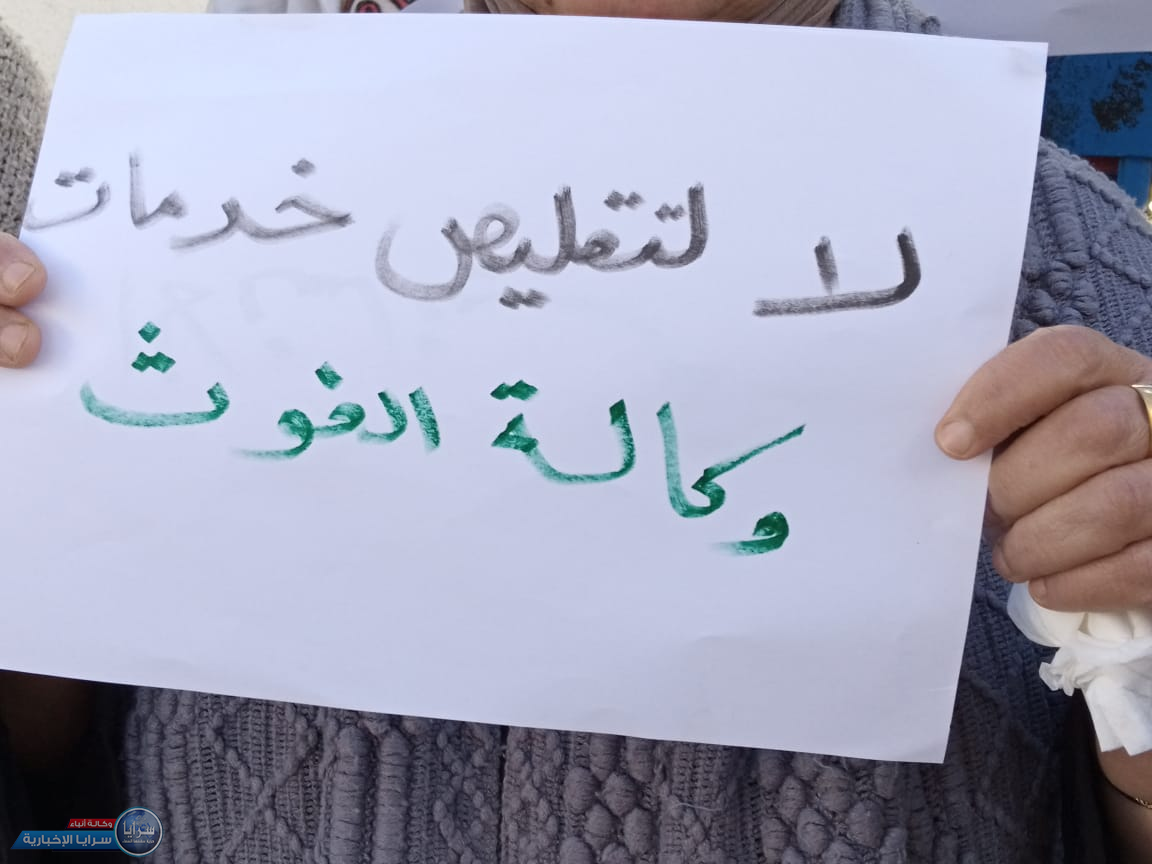 لا لتقليص خدمات
وكالة الغوث
وكالة أنباء
سرايا الإخبارية
سرايا